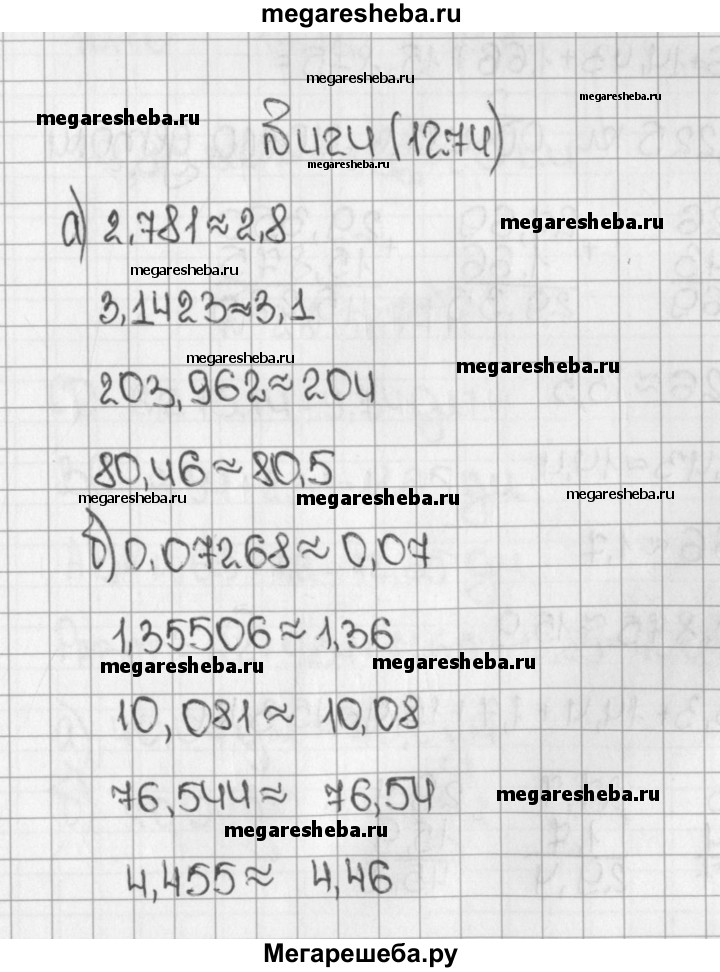 megaresheba.ru
megaresheba.ru
megaresheba.ru
megaresheba.ru
№ 424 (1274)
megaresheba.ru
а) 2,781 ≈ 2,8
megaresheba.ru
megaresheba.ru
3,1423 ≈ 3,1
megaresheba.ru
megaresheba.ru
203,962 ≈ 204
80,46 ≈ 80,5
megaresheba.ru
megaresheba.ru
megaresheba.ru
б) 0,07268 ≈ 0,07
1,35506 ≈ 1,36
megaresheba.ru
megaresheba.ru
10,081 ≈ 10,08
76,544 ≈ 76,54
megaresheba.ru
megaresheba.ru
4,455 ≈ 4,46
Мегарешеба.ру